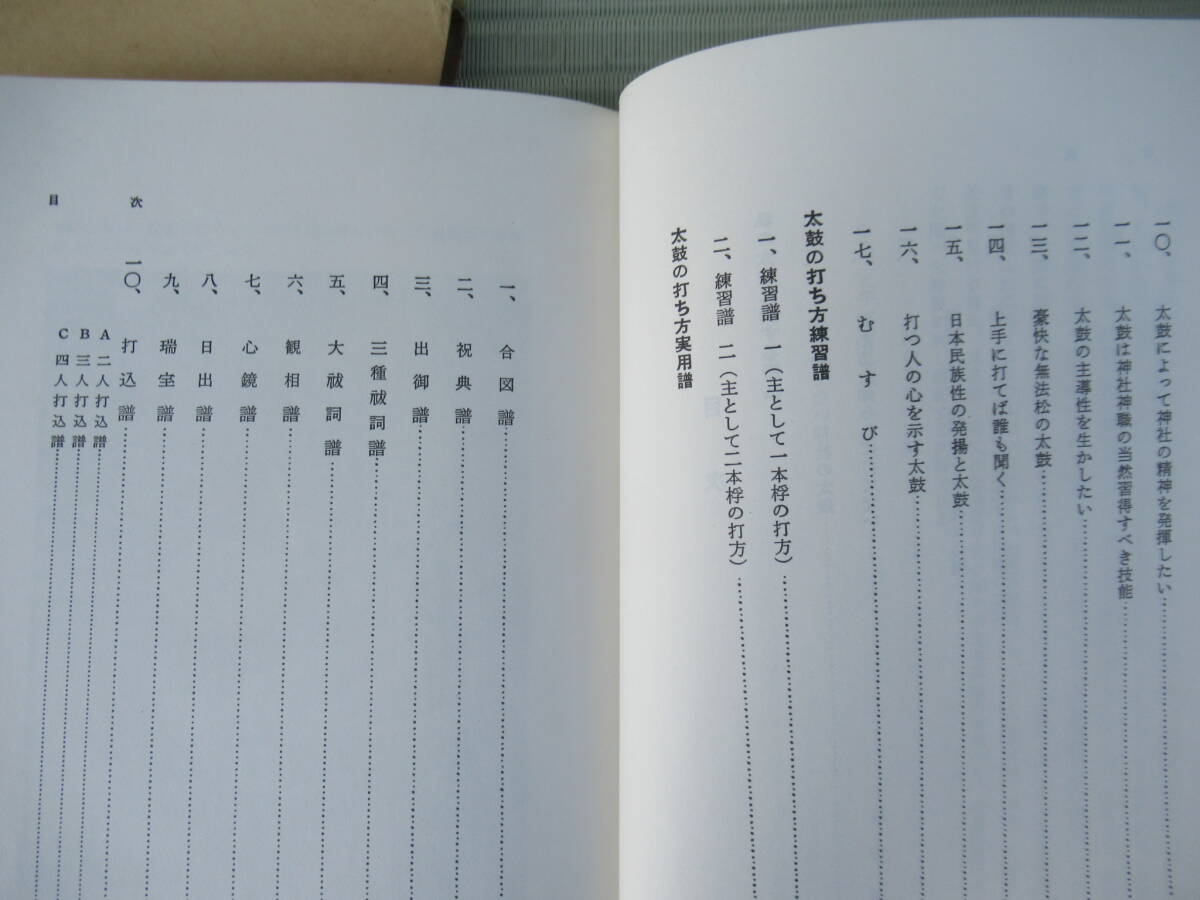 一〇、 太鼓によって神社の精神を発揮したい
一一、 太鼓は神社神職の当然習得すべき技能
一二、 太鼓の主導性を生かしたい
一三、 豪快な無法松の太鼓
一四、 上手に打てば誰も聞く
一五、 日本民族性の発揚と太鼓
一六、 打つ人の心を示す太鼓
一七、 むすび
太鼓の打ち方練習譜
一、 練習譜 一(主として一本桴の打方)
二、 練習譜 二(主として二本桴の打方)
太鼓の打ち方実用譜
一、 合図譜
二、 祝典譜
三、 出御譜
四、 三種祓詞譜
五、 大祓詞譜
六、 観相譜
七、 心鏡譜
八、 日出譜
九、 瑞室譜
一〇、 打込譜
A 二人打込譜
B 三人打込譜
C 四人打込譜
目次